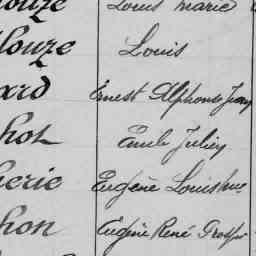 ouze Louis Marie
louze Louis
ard Ernest Alphonse Jean
hot Emile Julien
herie Eugène Louis
hon Eugène René